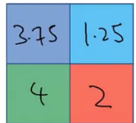 3.75 1.25
4 2